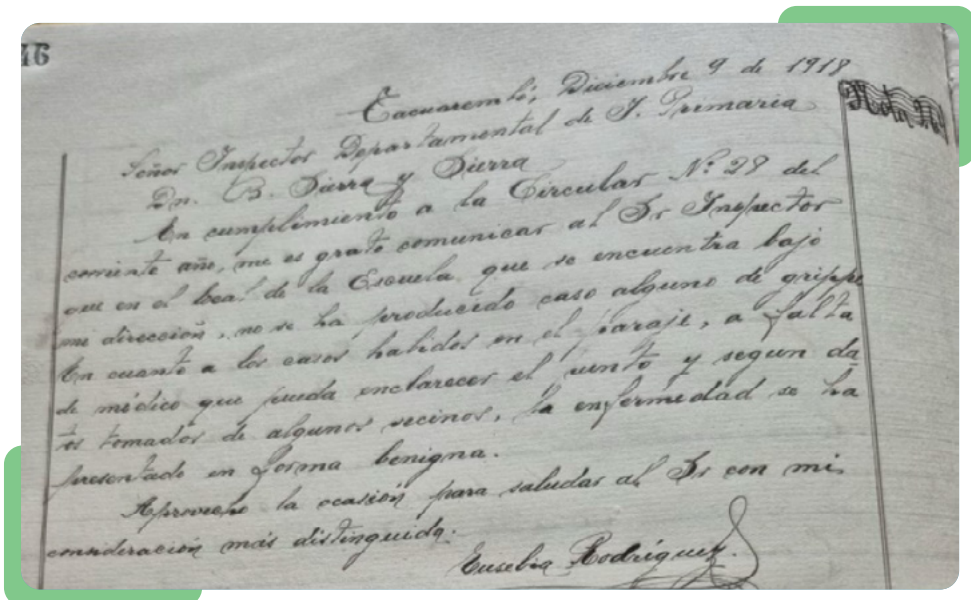 46
Tacuarembó, Diciembre 9 de 1918
Nota Nº
Señor Inspector Departamental de I. Primaria
Dn. B. Sierra y Sierra
En cumplimiento a la Circular Nº 28 del
corriente año, me es grato comunicar al Sr Inspector
que en el local de la Escuela que se encuentra bajo
mi dirección, no se ha producido caso alguno de grippe
En cuanto a los casos habidos en el paraje, a falta
de médico que pueda enclarecer el punto y segun da
tos tomados de algunos vecinos, la enfermedad se ha
presentado en forma benigna.
Aprovecho la ocasión para saludar al Sr con mi
consideración más distinguida.
Eusebia Rodríguez.